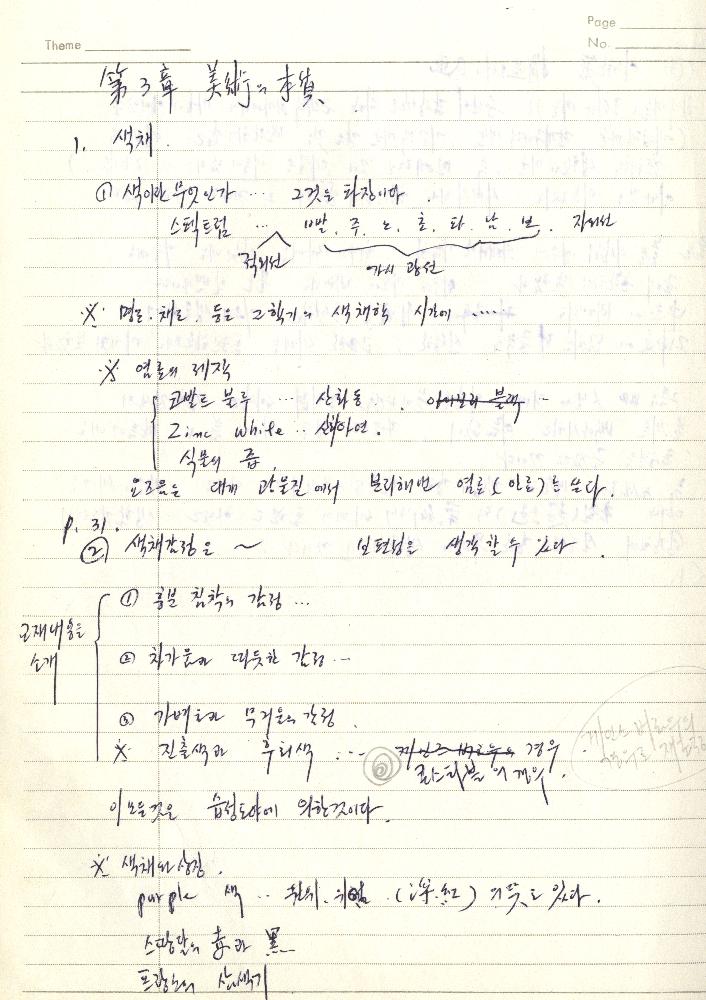 Page
Theme
No.
第 3 章 美術의 本質
1. 색채.
① 색이란 무엇인가 … 그것은 파장이다.
스펙트럼 … 빨. 주. 노. 초. 파. 남. 보. 자외선
적외선
가시 광선
※ 명도. 채도. 등은 2학기의 색채학 시간에 ……
※ 염료의 제작
코발트 블루 … 산화동. 아이보리 블랙 …
Zinc white … 산화아연.
식물의 즙.
요즈음은 대개 광물질에서 분리해낸 염료(안료)를 쓴다.
P. 31.
② 색채감정은 ~ 보편성을 생각할 수 있다.
교재내용을
소개
① 흥분 침착의 감정 …
② 차가움과 따뜻한 감정 …
③ 가벼움과 무거움의 감정.
※ 진출색과 후퇴색 … 경우
콘스타블의 경우.
이 모든것은 습성도야에 의한것이다.
※ 색채의 상징.
purple 색 … 권위. 위엄. (深紅) 의 뜻도 있다.
스땅달의 赤과 黑
프랑스의 삼색기